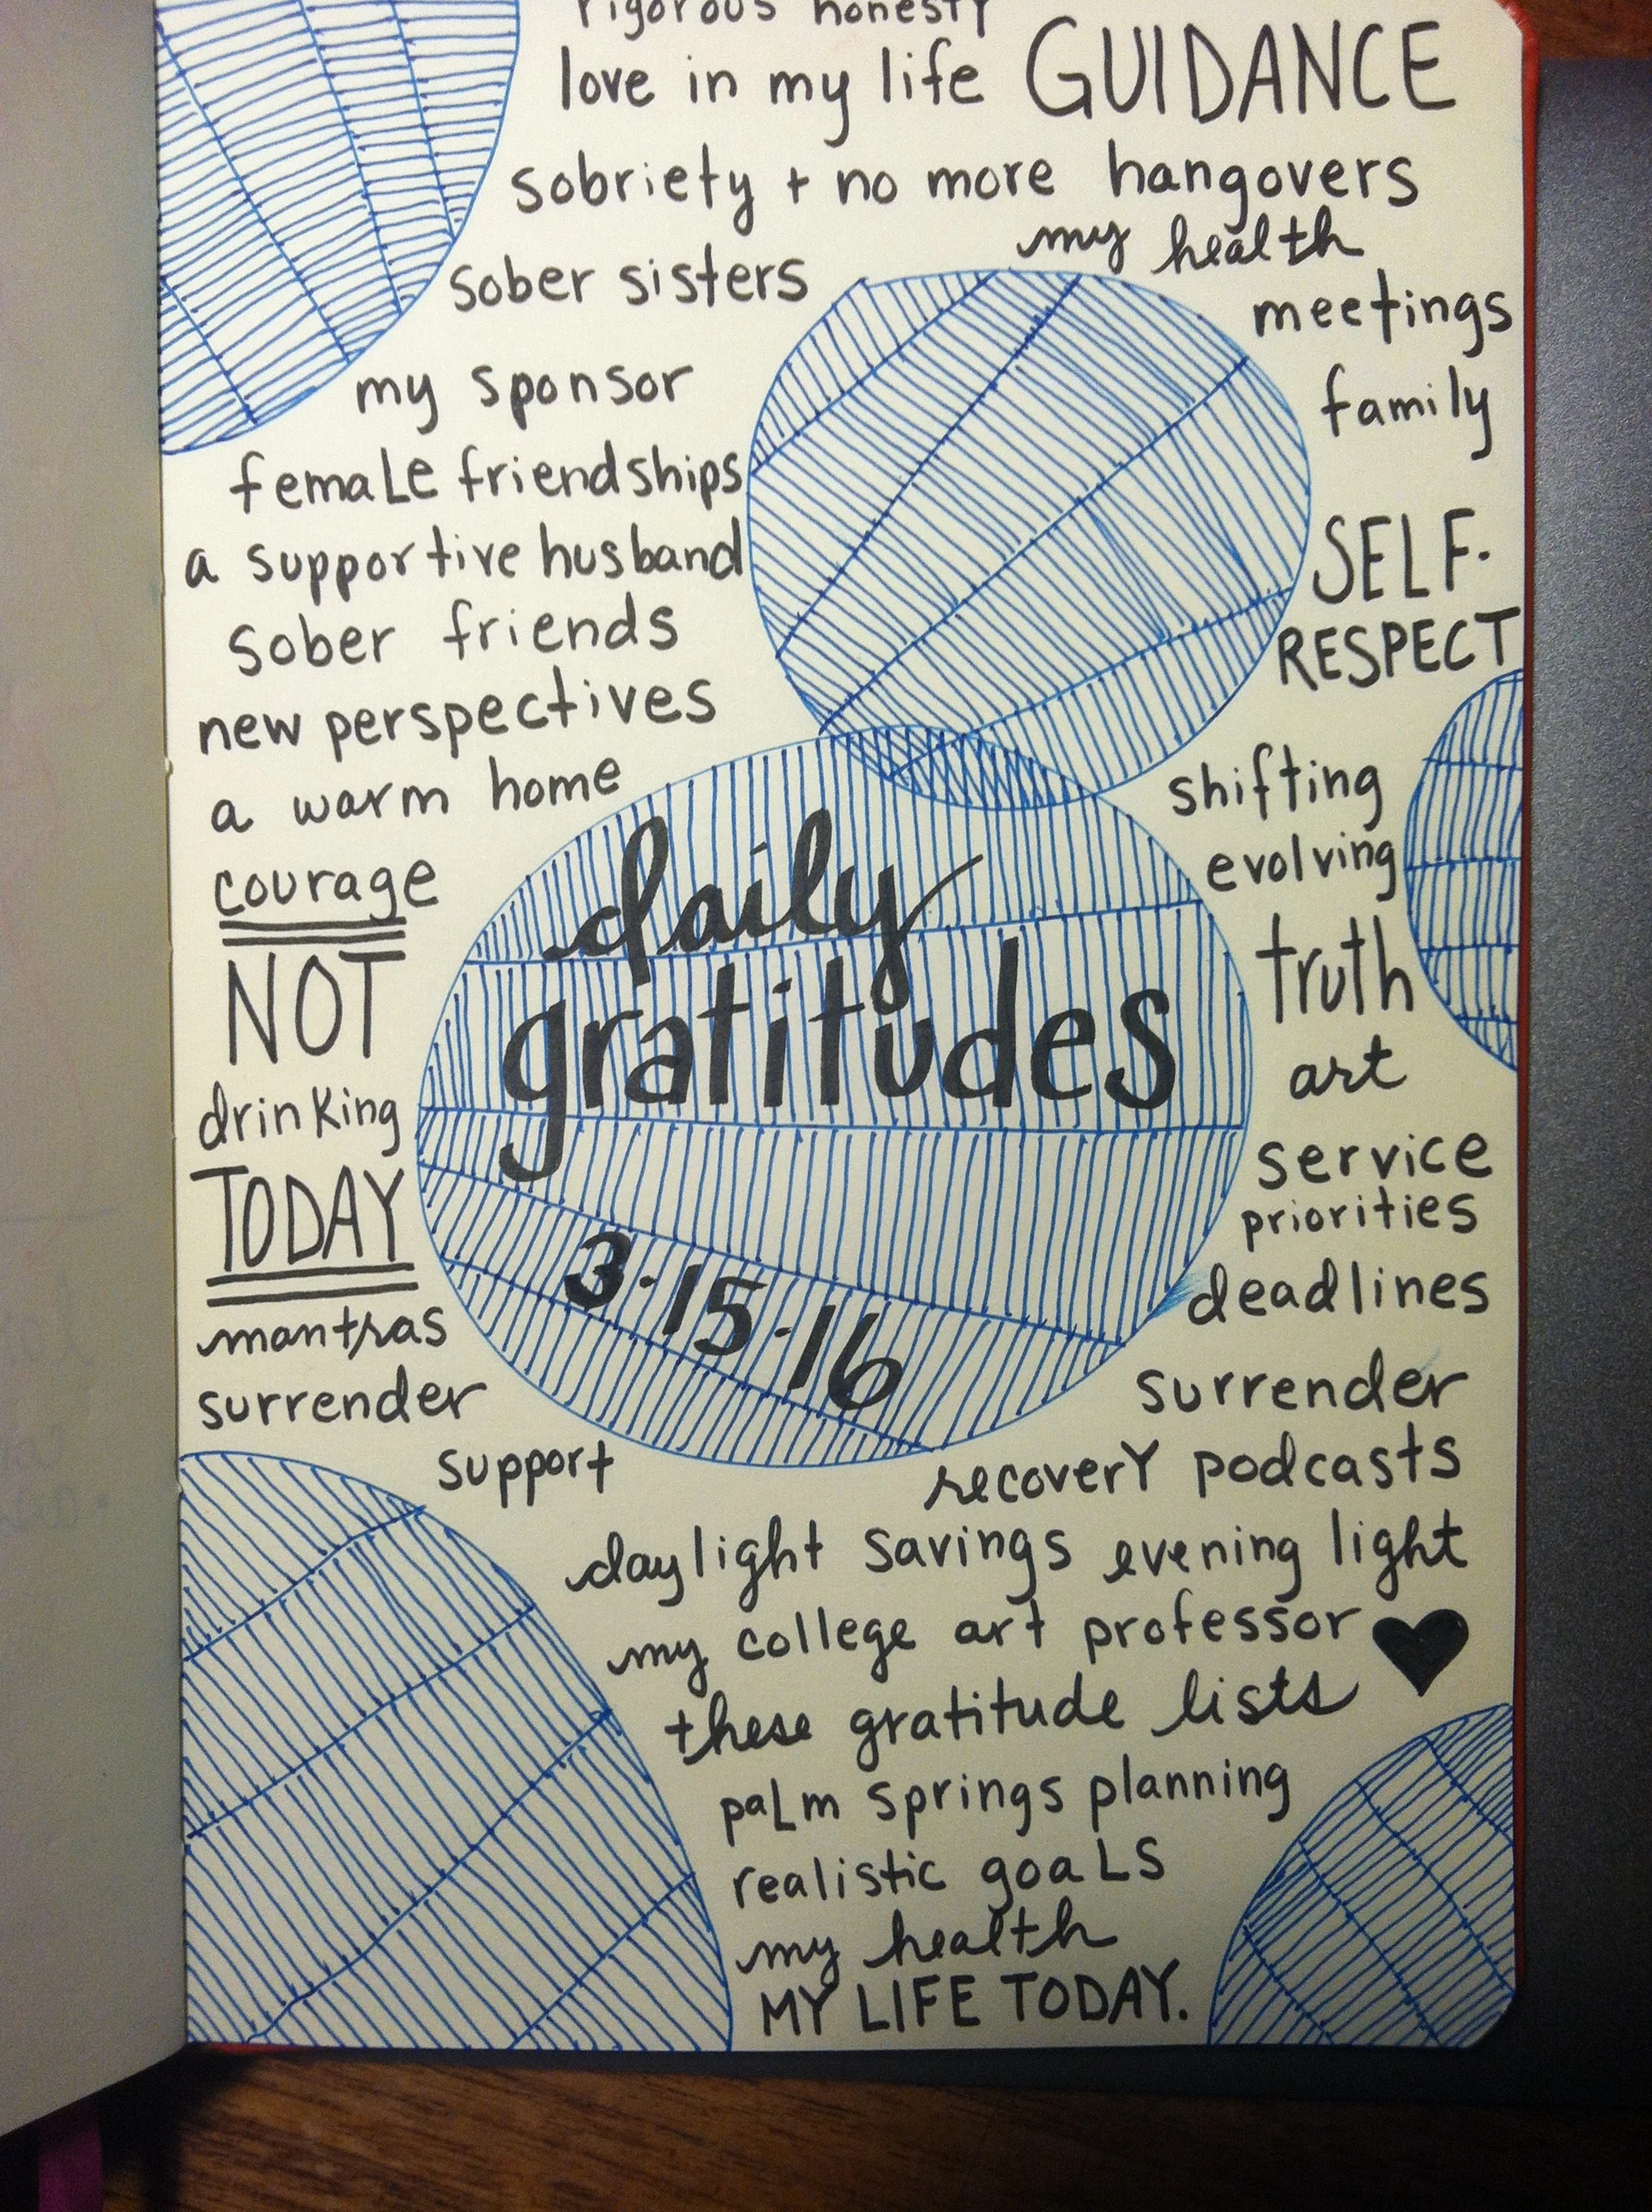 rigorous honesty
love in my life GUIDANCE
sobriety + no more hangovers
my health
sober sisters
meetings
my sponsor
family
female friendships
a supportive husband
SELF-
RESPECT
sober friends
new perspectives
a warm home
shifting
evolving
courage
NOT
drinking
TODAY
mantras
surrender
support
daily
gratitudes
3·15·16
truth
art
service
priorities
deadlines
surrender
recovery podcasts
daylight savings evening light
my college art professor ♥
these gratitude lists
palm springs planning
realistic goals
my health
MY LIFE TODAY.